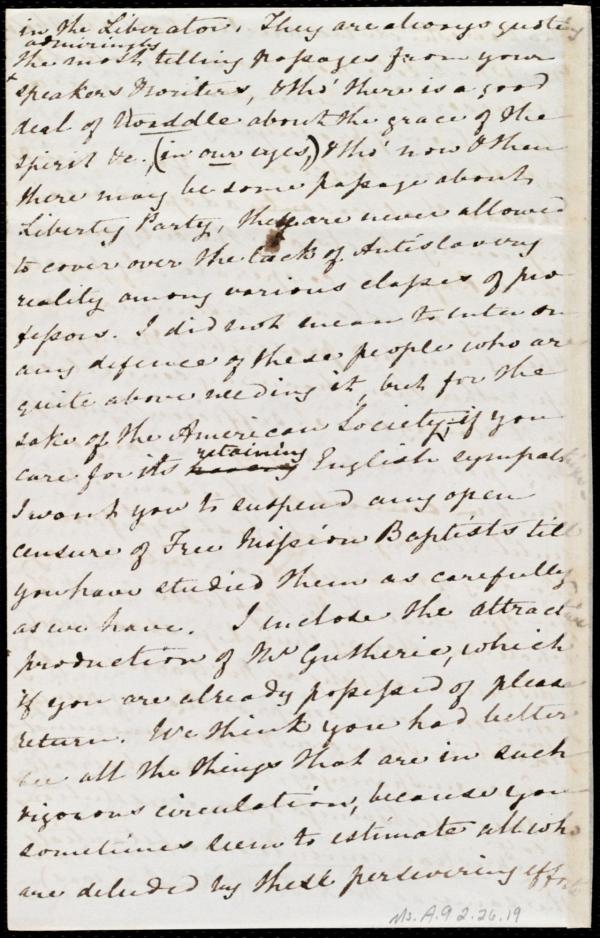 in the Liberator. They are always quoting
admiringly
the most telling passages from your
speakers & writers, & tho' there is a good
deal of twaddle about the grace of the
spirit &c., (in our eyes,) & tho' now & then
there may be some passage about
Liberty Party, they are never allowed
to cover over the lack of Antislavery
reality among various classes of pro
fessors. I did not mean to enter on
any defence of these people who are
quite above needing it, but for the
sake of the American Society, if you
care for its retaining English sympathy
I want you to suspend any open
censure of Free Mission Baptists till
you have studied them as carefully
as we have. I inclose the attractive
production of Mr Gutherie, which
if you are already possessed of please
return. We think you had better
see all the things that are in such
vigorous circulation, because you
sometimes seem to estimate all who
are deluded by these persevering efforts
Ms. A.9 2.26.19